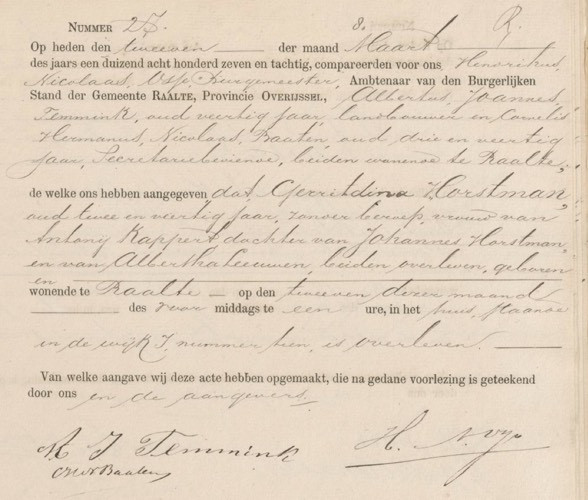 NUMMER 27. 8. R.
Op heden den tweeden der maand Maart
des jaars een duizend acht honderd zeven en tachtig, compareerden voor ons, Henricus,
Nicolaas, Vos, Burgemeester, Ambtenaar van den Burgerlijken
Stand der Gemeente RAALTE, Provincie OVERIJSSEL, Albertus, Joannes,
Temmink, oud veertig jaar, landbouwer en Cornelis
Hermanus, Nicolaas, Baaten, oud drie en veertig
jaar, Secretariebediende, beiden wonende te Raalte,
de welke ons hebben aangegeven dat, Gerritdina Horstman,
oud twee en veertig jaar, zonder beroep, vrouw van
Antonij Kappert dochter van Johannes Horstman,
en van Albertha Leeuwen, beiden overleden, geboren
en
wonende te Raalte op den tweeden dezer maand
des voor middags te een ure, in het huis, staande
in de wijk J nummer tien, is overleden.
Van welke aangave wij deze acte hebben opgemaakt, die na gedane voorlezing is geteekend
door ons en de aangevers.
A J Temmink H. N. Vos
CHN Baaten